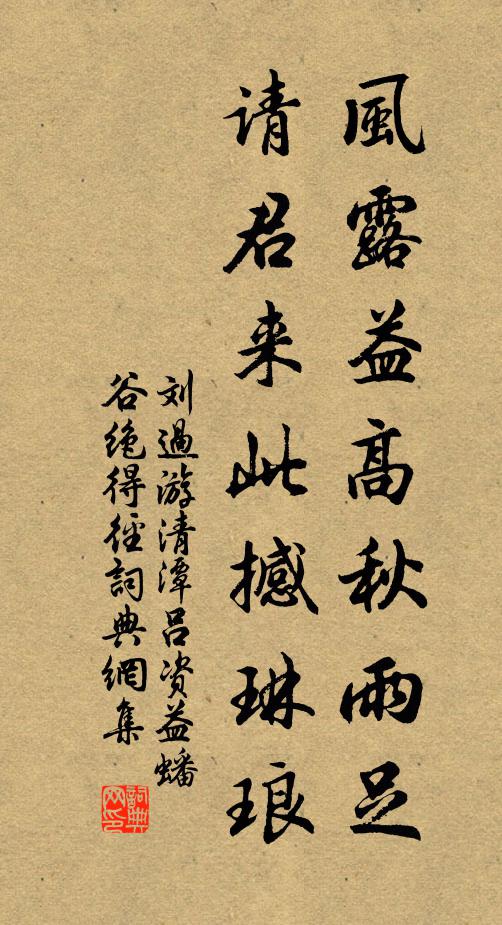 風露益高秋雨足
请君来此撼琳琅
刘過游清潭吕资益蟠
谷绝得徑詞典網集
詞典网印